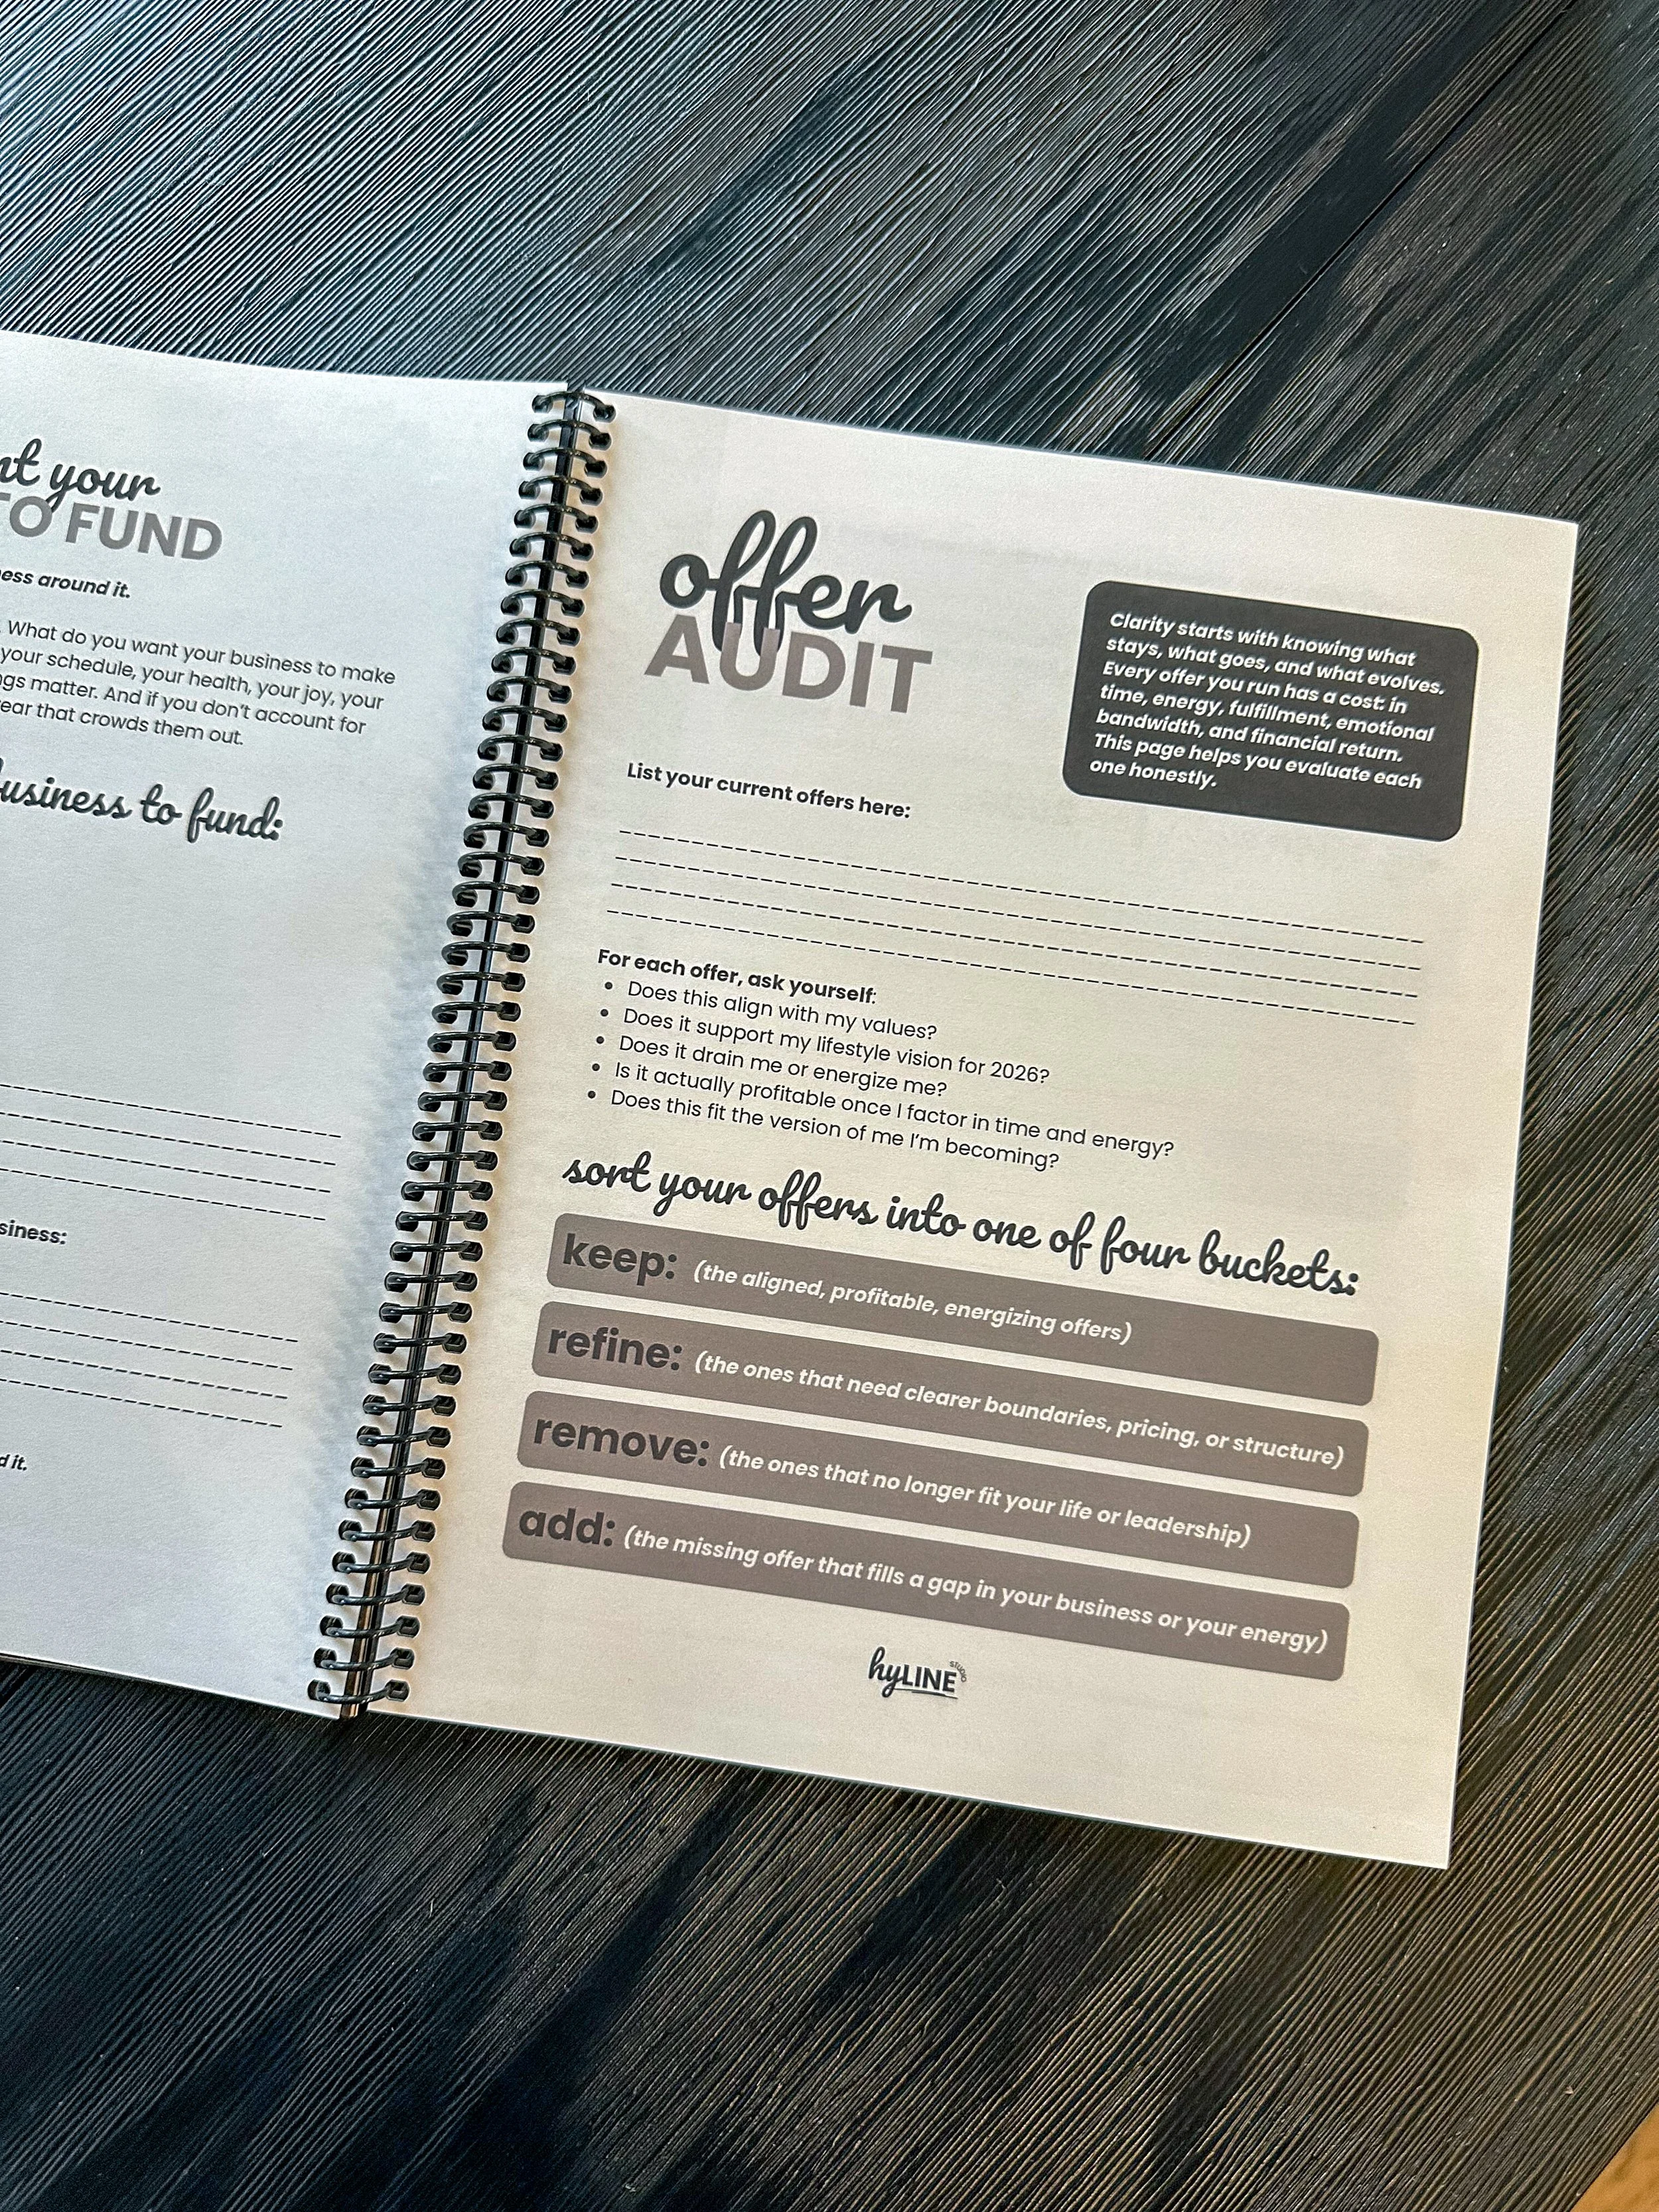 your
TO FUND
ess around it.
What do you want your business to make
your schedule, your health, your joy, your
gs matter. And if you don't account for
ear that crowds them out.
business to fund:
siness:
d it.
offer
AUDIT
Clarity starts with knowing what
stays, what goes, and what evolves.
Every offer you run has a cost: in
time, energy, fulfillment, emotional
bandwidth, and financial return.
This page helps you evaluate each
one honestly.
List your current offers here:
For each offer, ask yourself:
• Does this align with my values?
• Does it support my lifestyle vision for 2026?
• Does it drain me or energize me?
• Is it actually profitable once I factor in time and energy?
• Does this fit the version of me I'm becoming?
sort your offers into one of four buckets:
keep: (the aligned, profitable, energizing offers)
refine: (the ones that need clearer boundaries, pricing, or structure)
remove: (the ones that no longer fit your life or leadership)
add: (the missing offer that fills a gap in your business or your energy)
hyLINE STUDIO